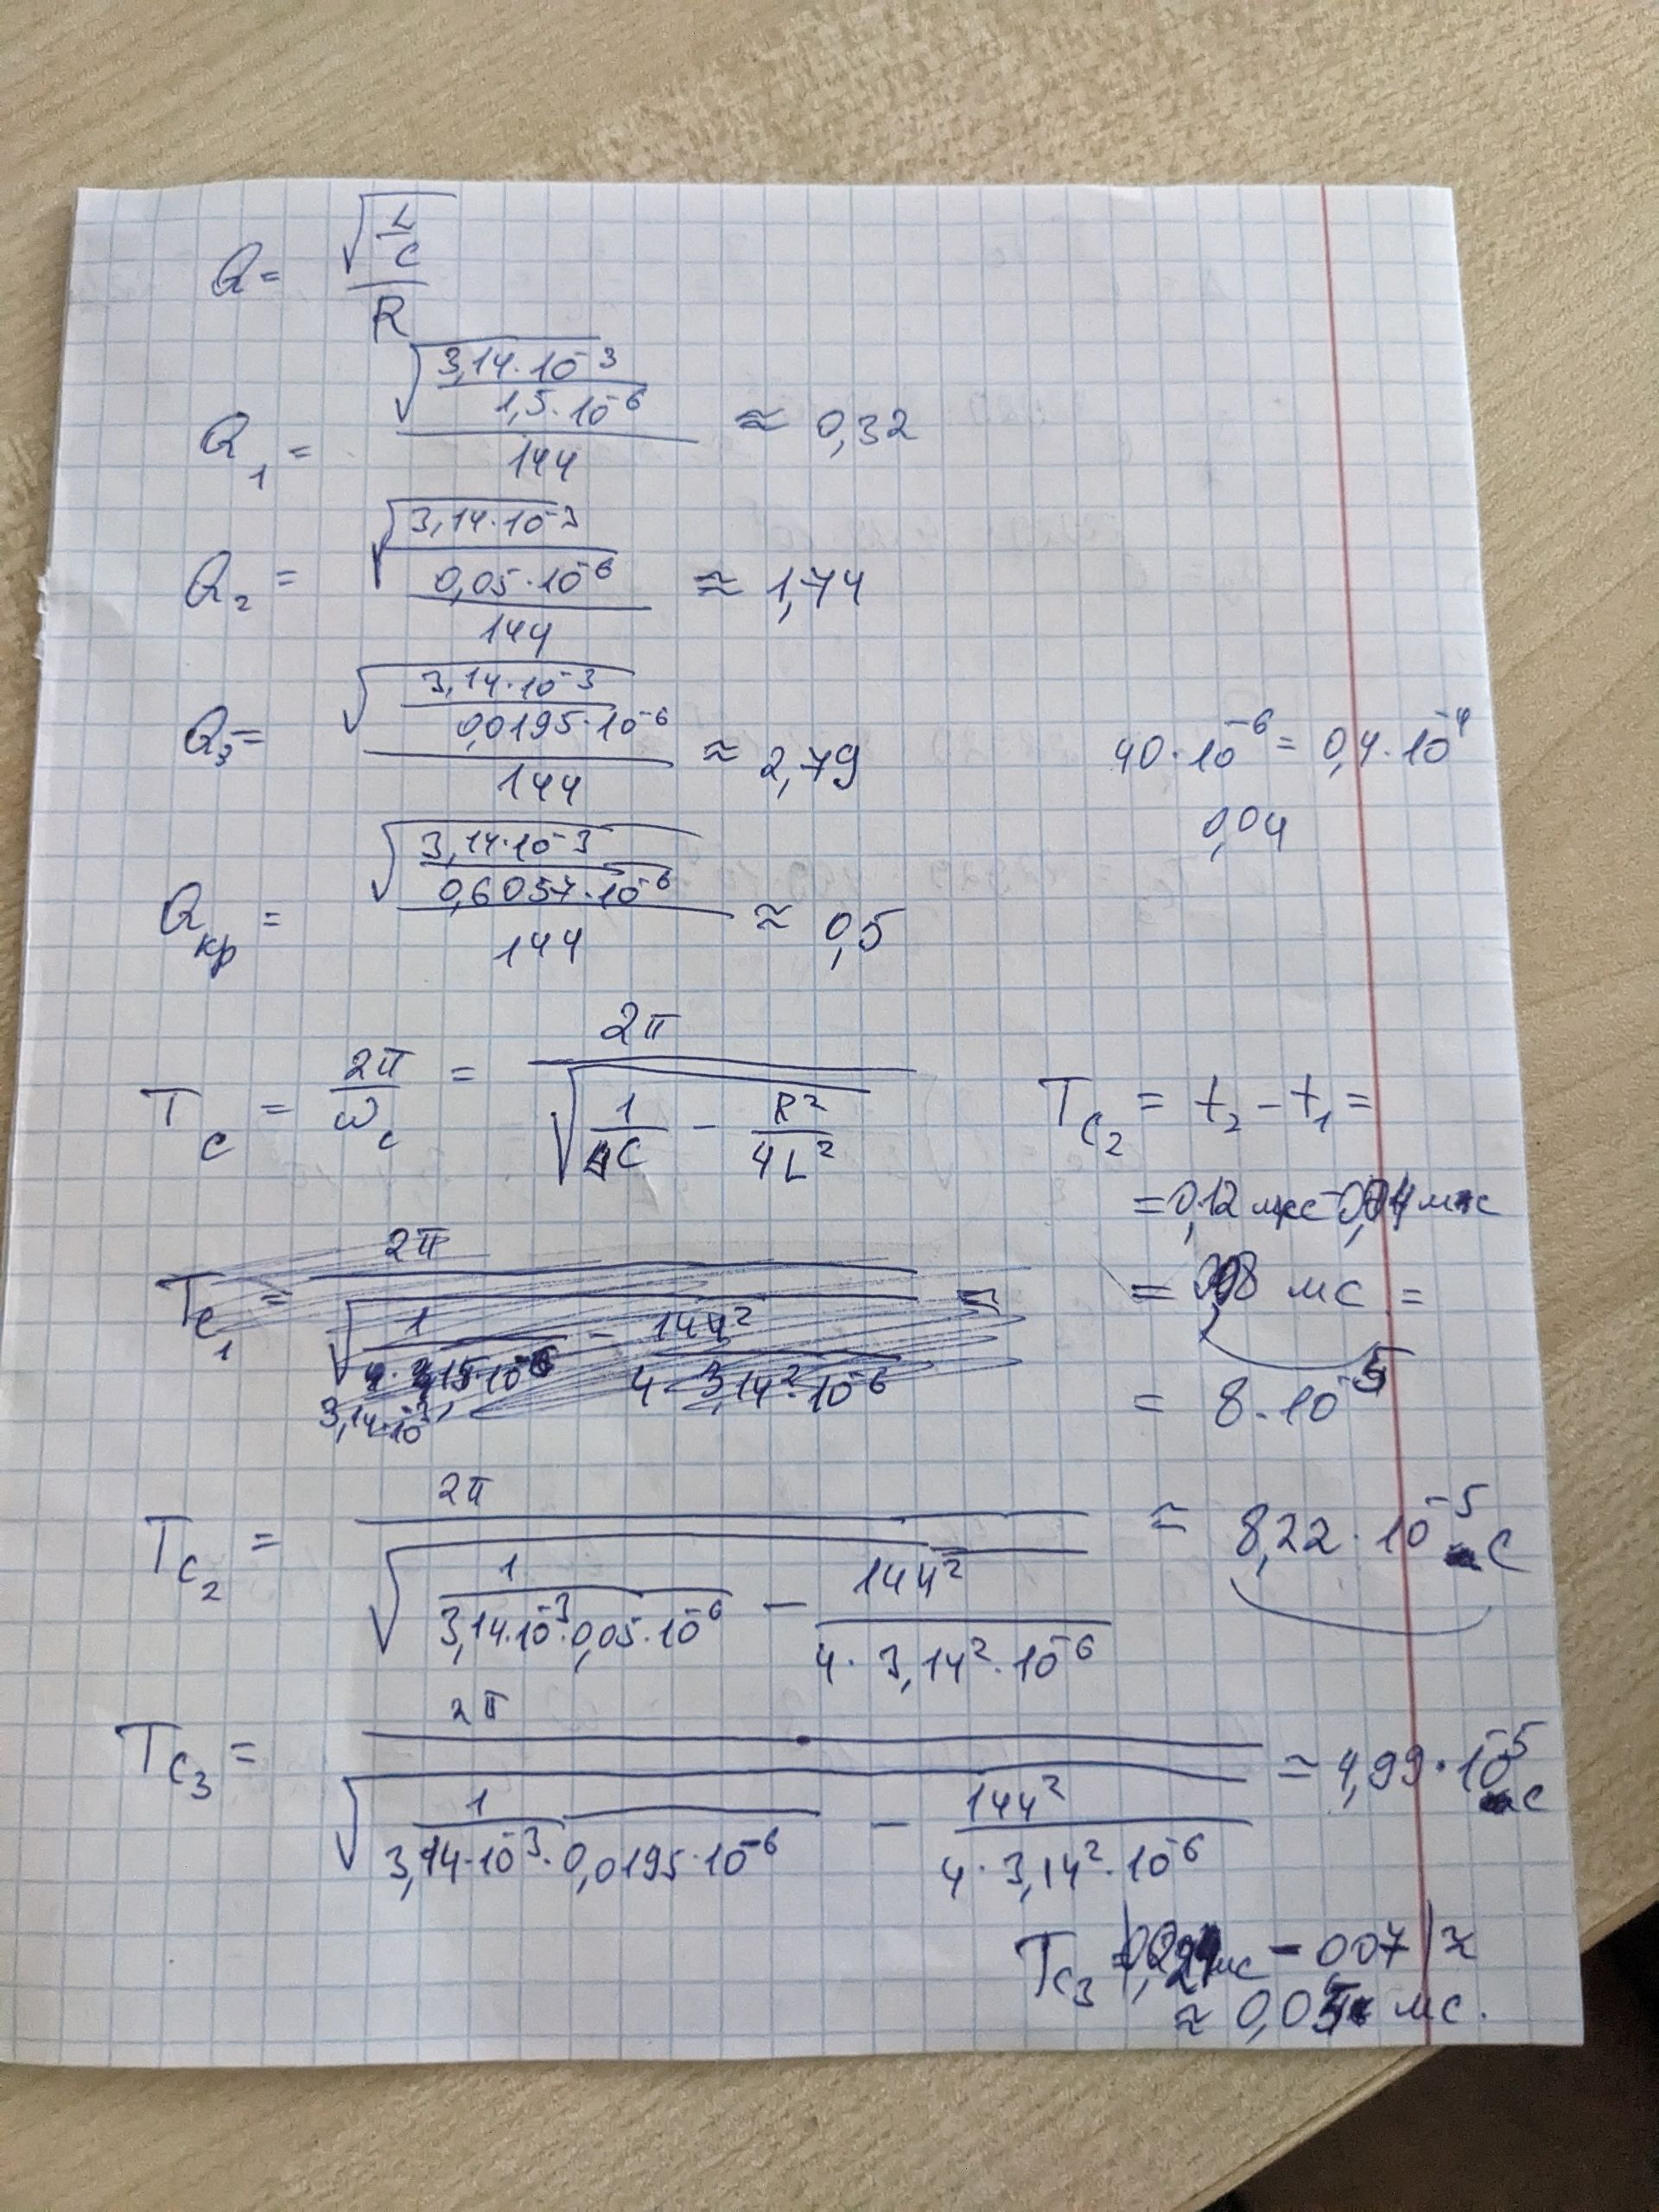 Q = √(L/C) / R
Q₁ = √(3,14·10⁻³ / 1,5·10⁻⁶) / 144 ≈ 0,32
Q₂ = √(3,14·10⁻³ / 0,05·10⁻⁶) / 144 ≈ 1,74
Q₃ = √(3,14·10⁻³ / 0,0195·10⁻⁶) / 144 ≈ 2,79
40·10⁻⁶ = 0,4·10⁻⁴
0,04
Qкр = √(3,14·10⁻³ / 0,6057·10⁻⁶) / 144 ≈ 0,5
Tc = 2π/ωc = 2π / √(1/LC − R²/4L²)
Tc₂ = t₂ − t₁ =
= 0,12 мс − 0,04 мс
= 0,08 мс =
= 8·10⁻⁵
Tc₁ = 2π / √(1 / − 144² / 4·3,14²·10⁻⁶) =
3,14·10⁻³
Tc₂ = 2π / √(1 / 3,14·10⁻³·0,05·10⁻⁶ − 144² / 4·3,14²·10⁻⁶) ≈ 8,22·10⁻⁵ с
Tc₃ = 2π / √(1 / 3,14·10⁻³·0,0195·10⁻⁶ − 144² / 4·3,14²·10⁻⁶) ≈ 4,99·10⁻⁵ с
Tc₃ = мс − 0,07 | ≈
≈ 0,05 мс.